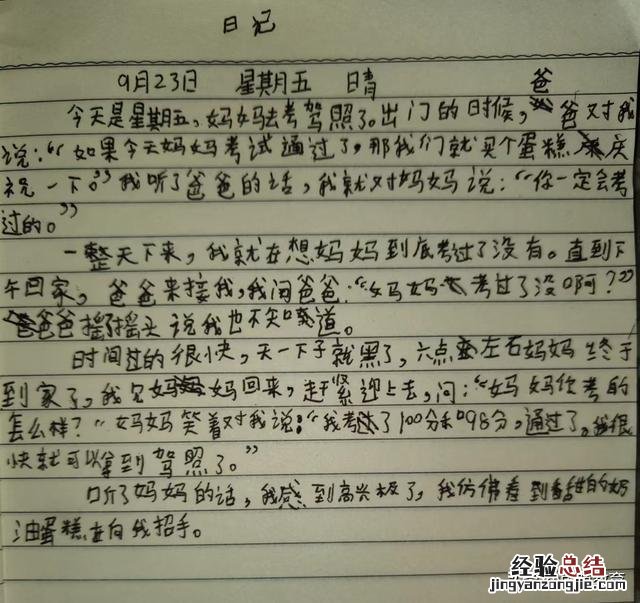 日记
9月23日 星期五 晴
爸
今天是星期五,妈妈去考驾照了。出门的时候, 爸对我
说:“如果今天妈妈考试通过了,那我们就买个蛋糕庆
祝一下。”我听了爸爸的话,我就对妈妈说:“你一定会考
过的。”
一整天下来,我就在想妈妈到底考过了没有。直到下
午回家,爸爸来接我,我问爸爸:“妈妈考过了没啊?”
爸爸摇了摇头说我也不知道。
时间过的很快,天一下子就黑了,六点左右妈妈终于
到家了,我见妈妈回来,赶紧迎上去,问:“妈妈你考的
怎么样?”妈妈笑着对我说:“我考了100分和98分,通过了。我很
快就可以拿到驾照了。”
听了妈妈的话,我感到高兴极了,我仿佛看到香甜的奶
油蛋糕在向我招手。
经验总结
jingyanzongjie.com